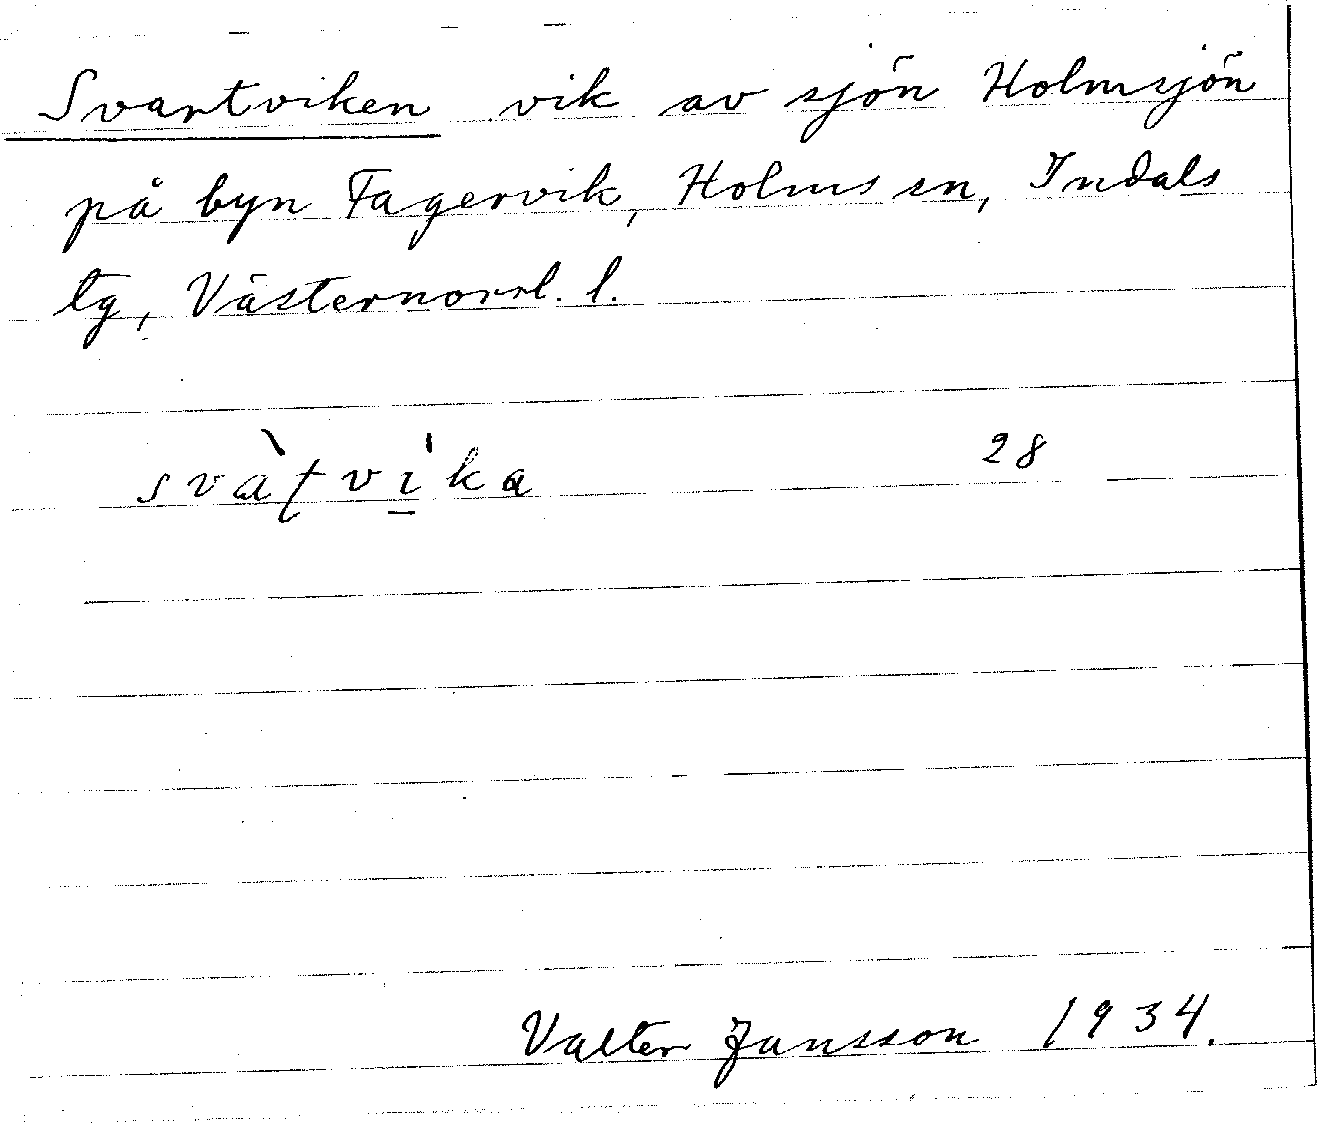 Svartviken vik av sjön Holmsjön
på byn Fagervik, Holms sn, Indals
tg, Västernorrl. l.
svàʈvi̠ˈka 28
Valter Jansson 1934.